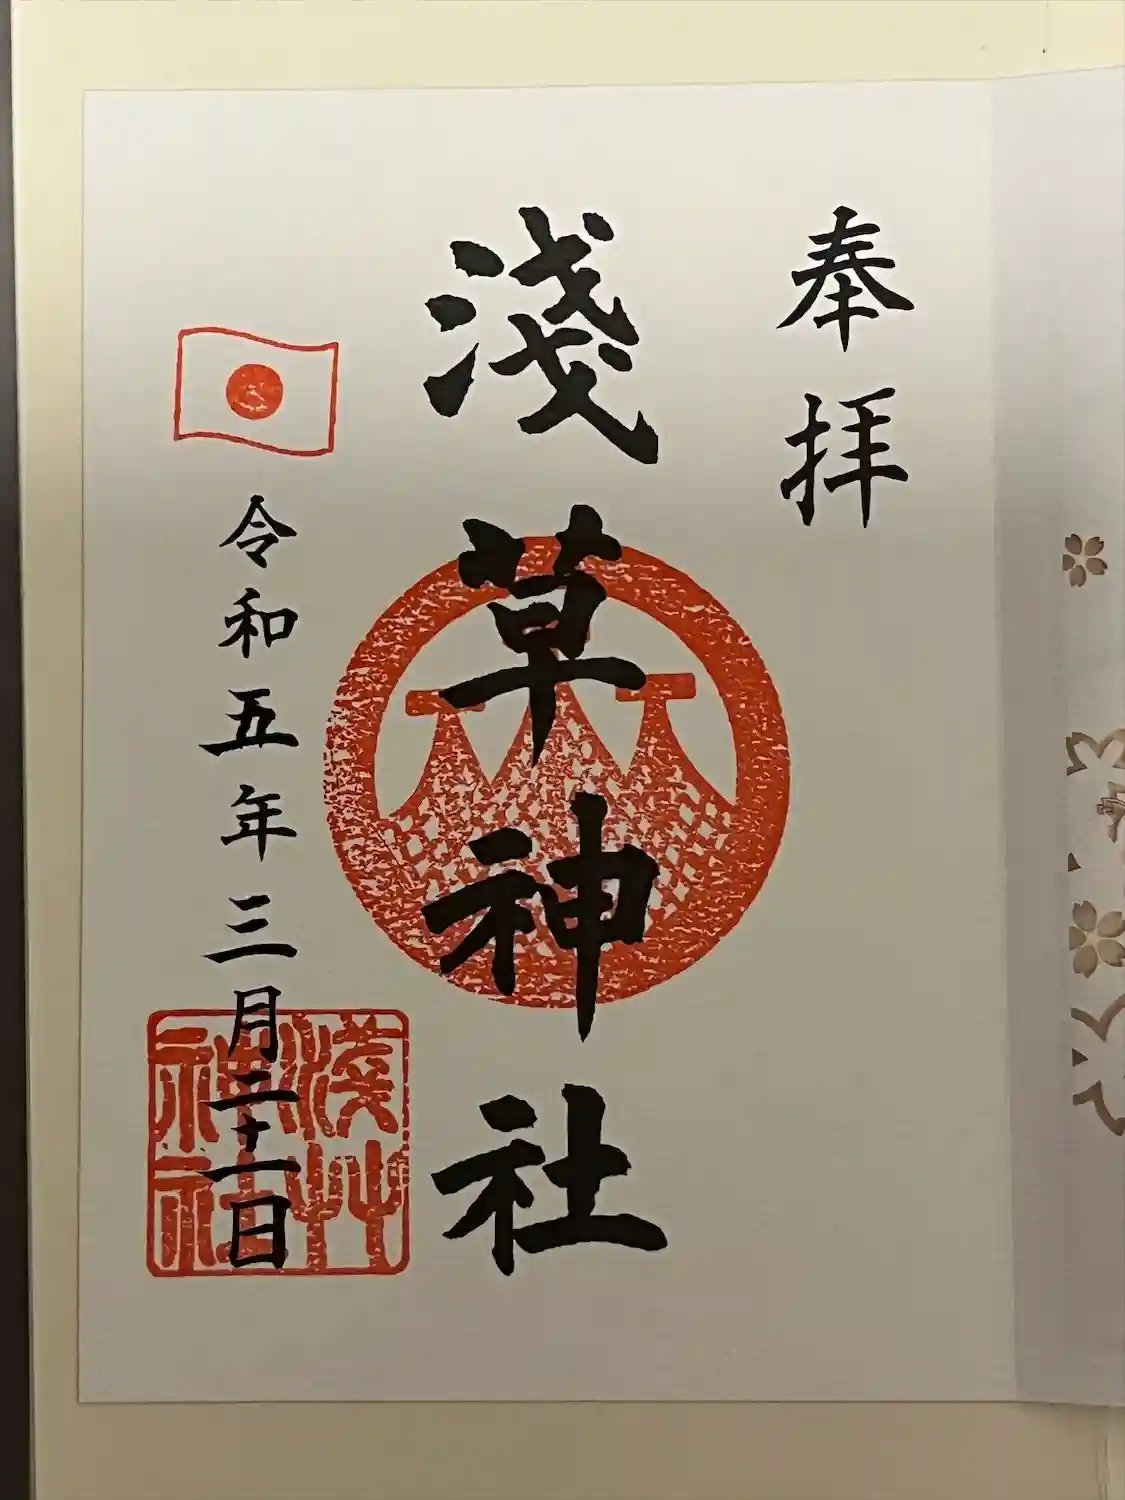 奉拝
淺草神社
令和五年三月二十一日
淺草
神社